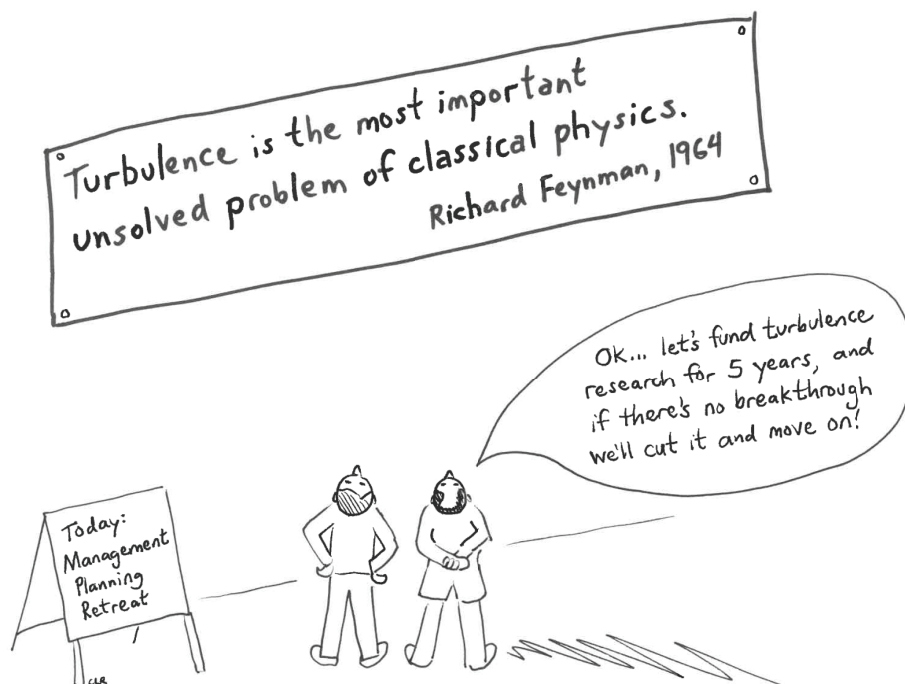 Turbulence is the most important
unsolved problem of classical physics.
Richard Feynman, 1964
Ok... let's fund turbulence
research for 5 years, and
if there's no breakthrough
we'll cut it and move on!
Today:
Management
Planning
Retreat